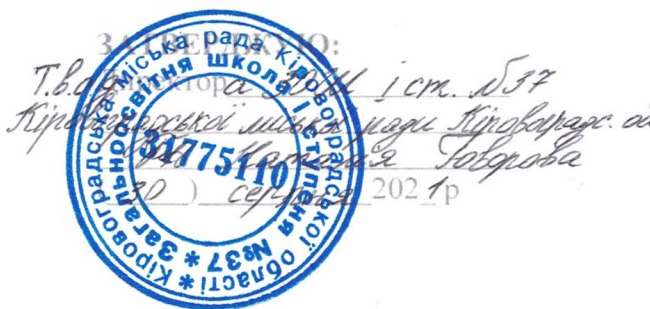 ЗАТВЕРДЖУЮ:
Т.в.о. директора ЗОШ І ст. №37
Кіровоградської міської ради Кіровоградс. об
Наталія Говорова
30 ) серпня 2021р
Кіровоградська міська рада Кіровоградської області *
Загальноосвітня школа І ступеня №37 *
31775110